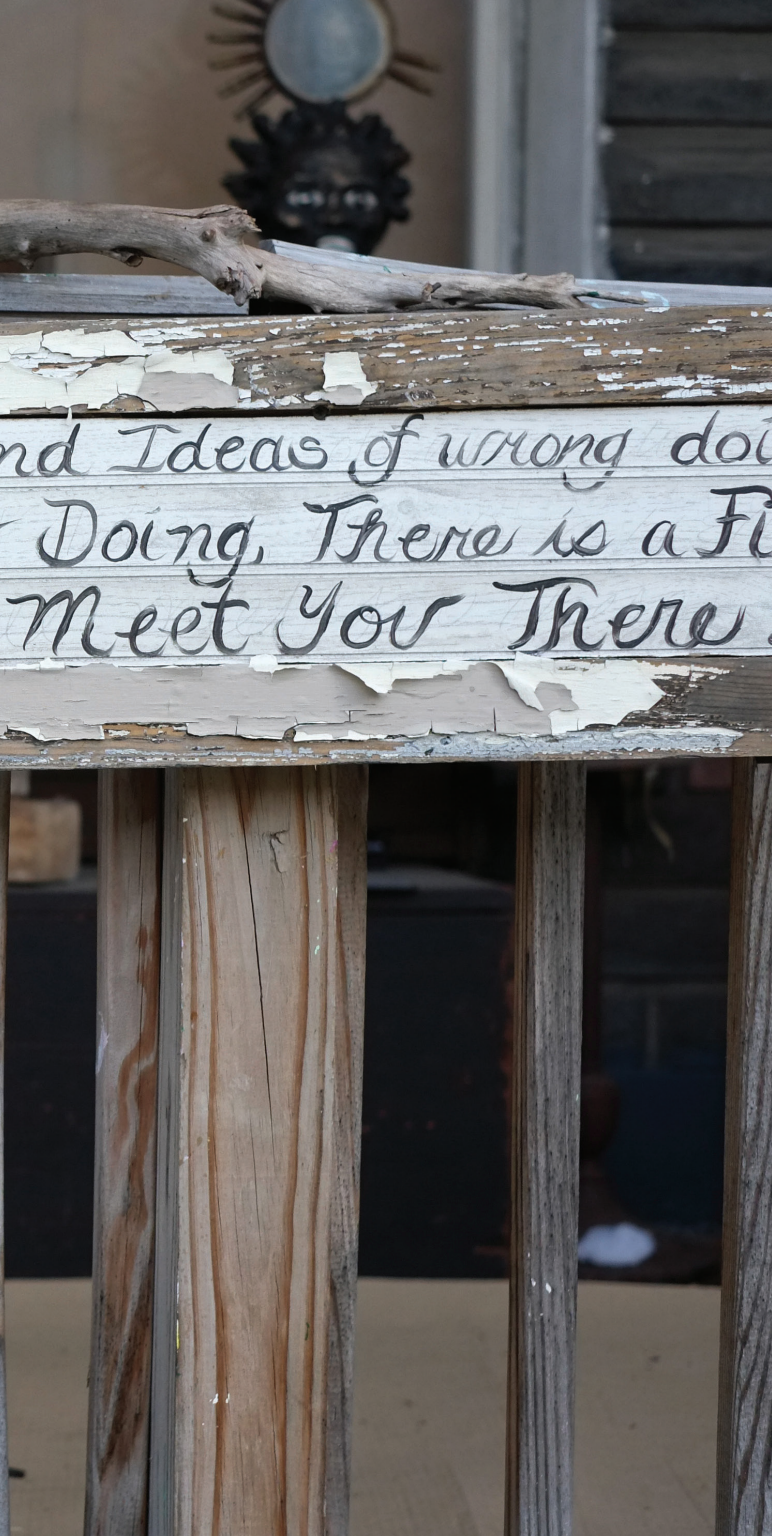 nd Ideas of wrong doi
Doing, There is a Fi
Meet You There.